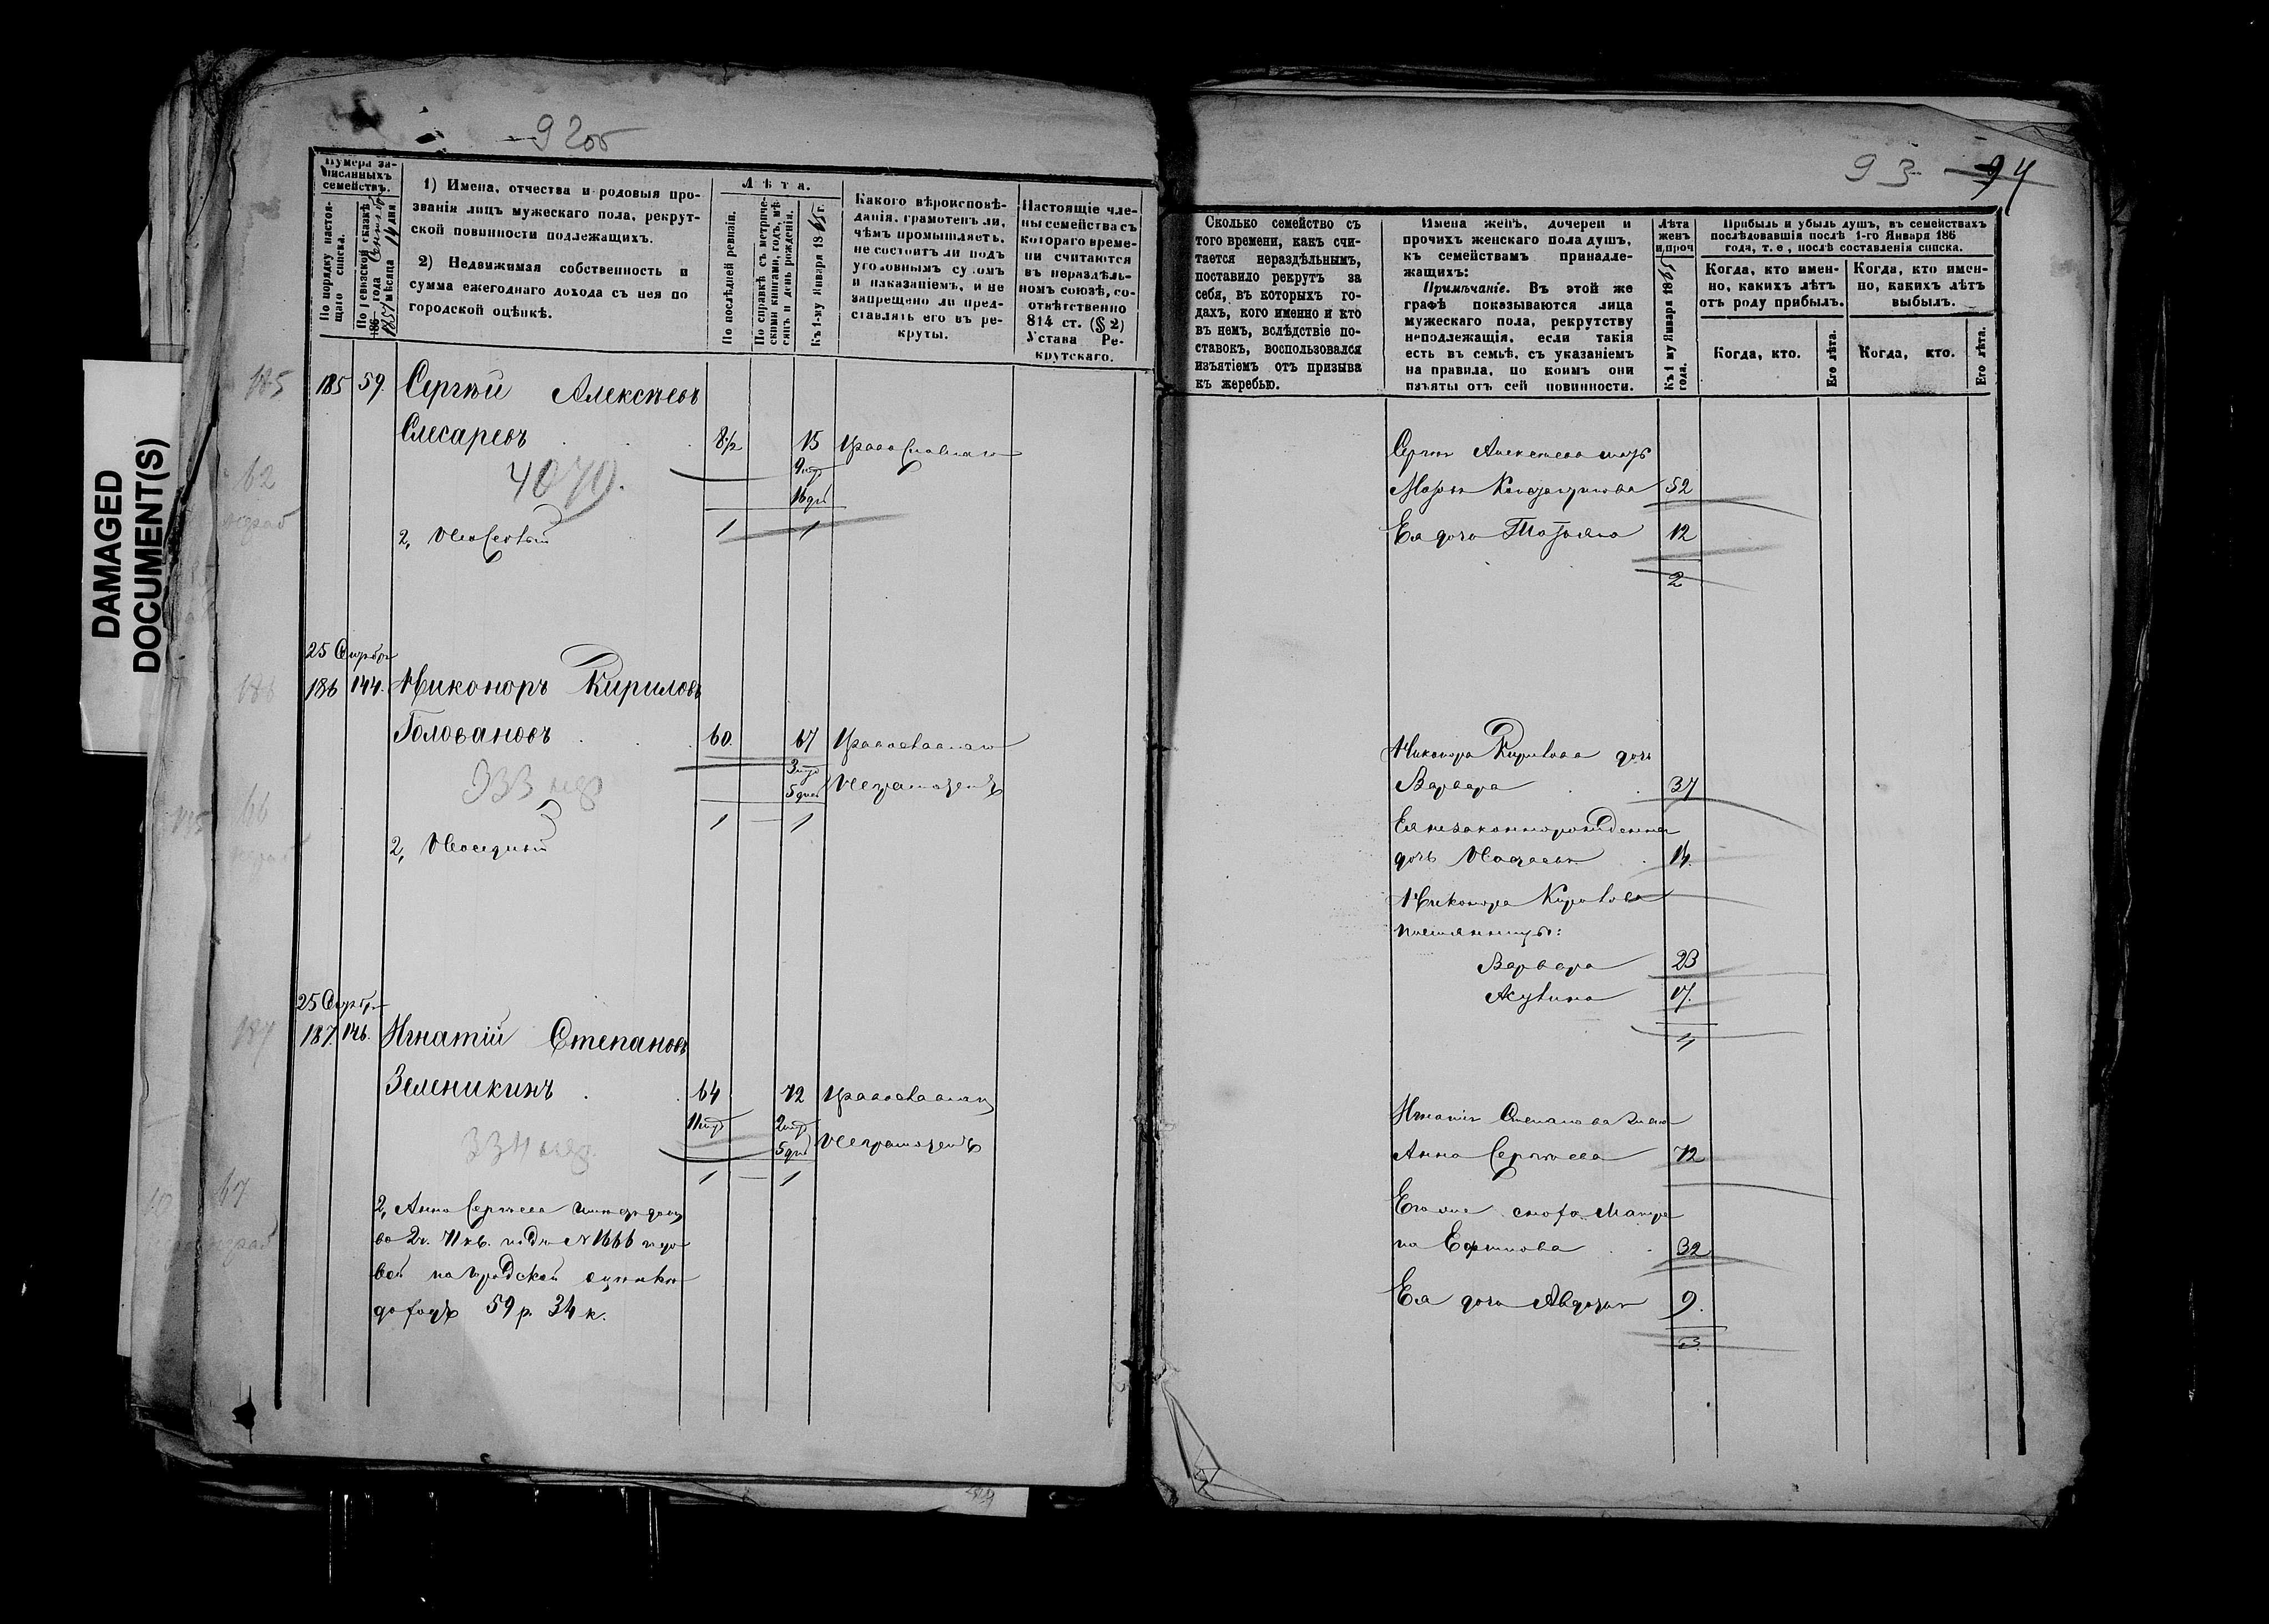 92об
Нумера за-
писанныхъ
семействъ.
По порядку настоя-
щаго списка.
По ревизской сказкѣ
186 года Сентября
1857 мѣсяца 14 дня
1) Имена, отчества и родовыя про-
званія лицъ мужескаго пола, рекрут-
ской повинности подлежащихъ.
2) Недвижимая собственность и
сумма ежегоднаго дохода съ нея по
городской оцѣнкѣ.
Лѣта.
По послѣдней ревизіи.
По справкѣ съ метриче-
скими книгами, годъ, мѣ-
сяцъ и день рожденія.
Къ 1-му Января 1865 г.
Какого вѣроисповѣ-
данія, грамотенъ ли,
чѣмъ промышляетъ,
не состоитъ ли подъ
уголовнымъ судомъ
и наказаніемъ, и не
запрещено ли пред-
ставлять его въ ре-
круты.
Настоящіе чле-
ны семейства съ
котораго време-
ни считаются
въ нераздѣль-
номъ союзѣ, со-
отвѣтственно
814 ст. (§ 2)
Устава Ре-
крутскаго.
185
185 59. Сергѣй Алексѣевъ
Слесаревъ 8½ 15 Православнаго
9 мѣс
4079. 16 дн
62
1 1
2,
25 Октября
186
186 144. Никоноръ Кириловъ
Головановъ 60. 67 Православнаго
3 мѣс
333 5 дней Неграмотенъ
66
1 — 1
2,
25 Октября
187
187. 146. Игнатій Степановъ
Зеленикинъ 64 72 Православнаго
11 мѣс 2 мѣс
334 5 дне Неграмотенъ
1 — 1
67
2, Анна Сергѣева
во 2 ч. 71 кв. подъ № 1666 годо
вой по городской оцѣнкѣ
доходъ 59 р. 34 к.
93 94
Сколько семейство съ
того времени, какъ счи-
тается нераздѣльнымъ,
поставило рекрутъ за
себя, въ которыхъ го-
дахъ, кого именно и кто
въ немъ, вслѣдствіе по-
ставокъ, воспользовался
изъятіемъ отъ призыва
къ жеребью.
Имена женъ, дочерей и
прочихъ женскаго пола душъ,
къ семействамъ принадле-
жащихъ:
Примѣчаніе. Въ этой же
графѣ показываются лица
мужескаго пола, рекрутству
неподлежащія, если такія
есть въ семьѣ, съ указаніемъ
на правила, по коимъ они
изъяты отъ сей повинности.
Лѣта
женъ
и проч
Къ 1 му Января 1865
года.
Прибыль и убыль душъ, въ семействахъ
послѣдовавшія послѣ 1-го Января 186
года, т. е., послѣ составленія списка.
Когда, кто имен-
но, какихъ лѣтъ
отъ роду прибылъ.
Когда, кто имен-
но, какихъ лѣтъ
выбылъ.
Когда, кто.
Его лѣта.
Когда, кто.
Его лѣта.
Сергѣя Алексѣева мать
Марья Константинова 52
Ея дочь Татьяна 12
2
Никонора Кирилова дочь
Варвара 37
Ея незаконнорожденная
дочь Наталья 14.
Никонора Кирилова
племянницы:
Варвара 23
Акулина 17.
4
Игнатія Степанова жена
Анна Сергѣева 72
Его же сноха Матре
на Ефимова 32
Ея дочь Авдотья 9.
3.
DAMAGED
DOCUMENT(S)